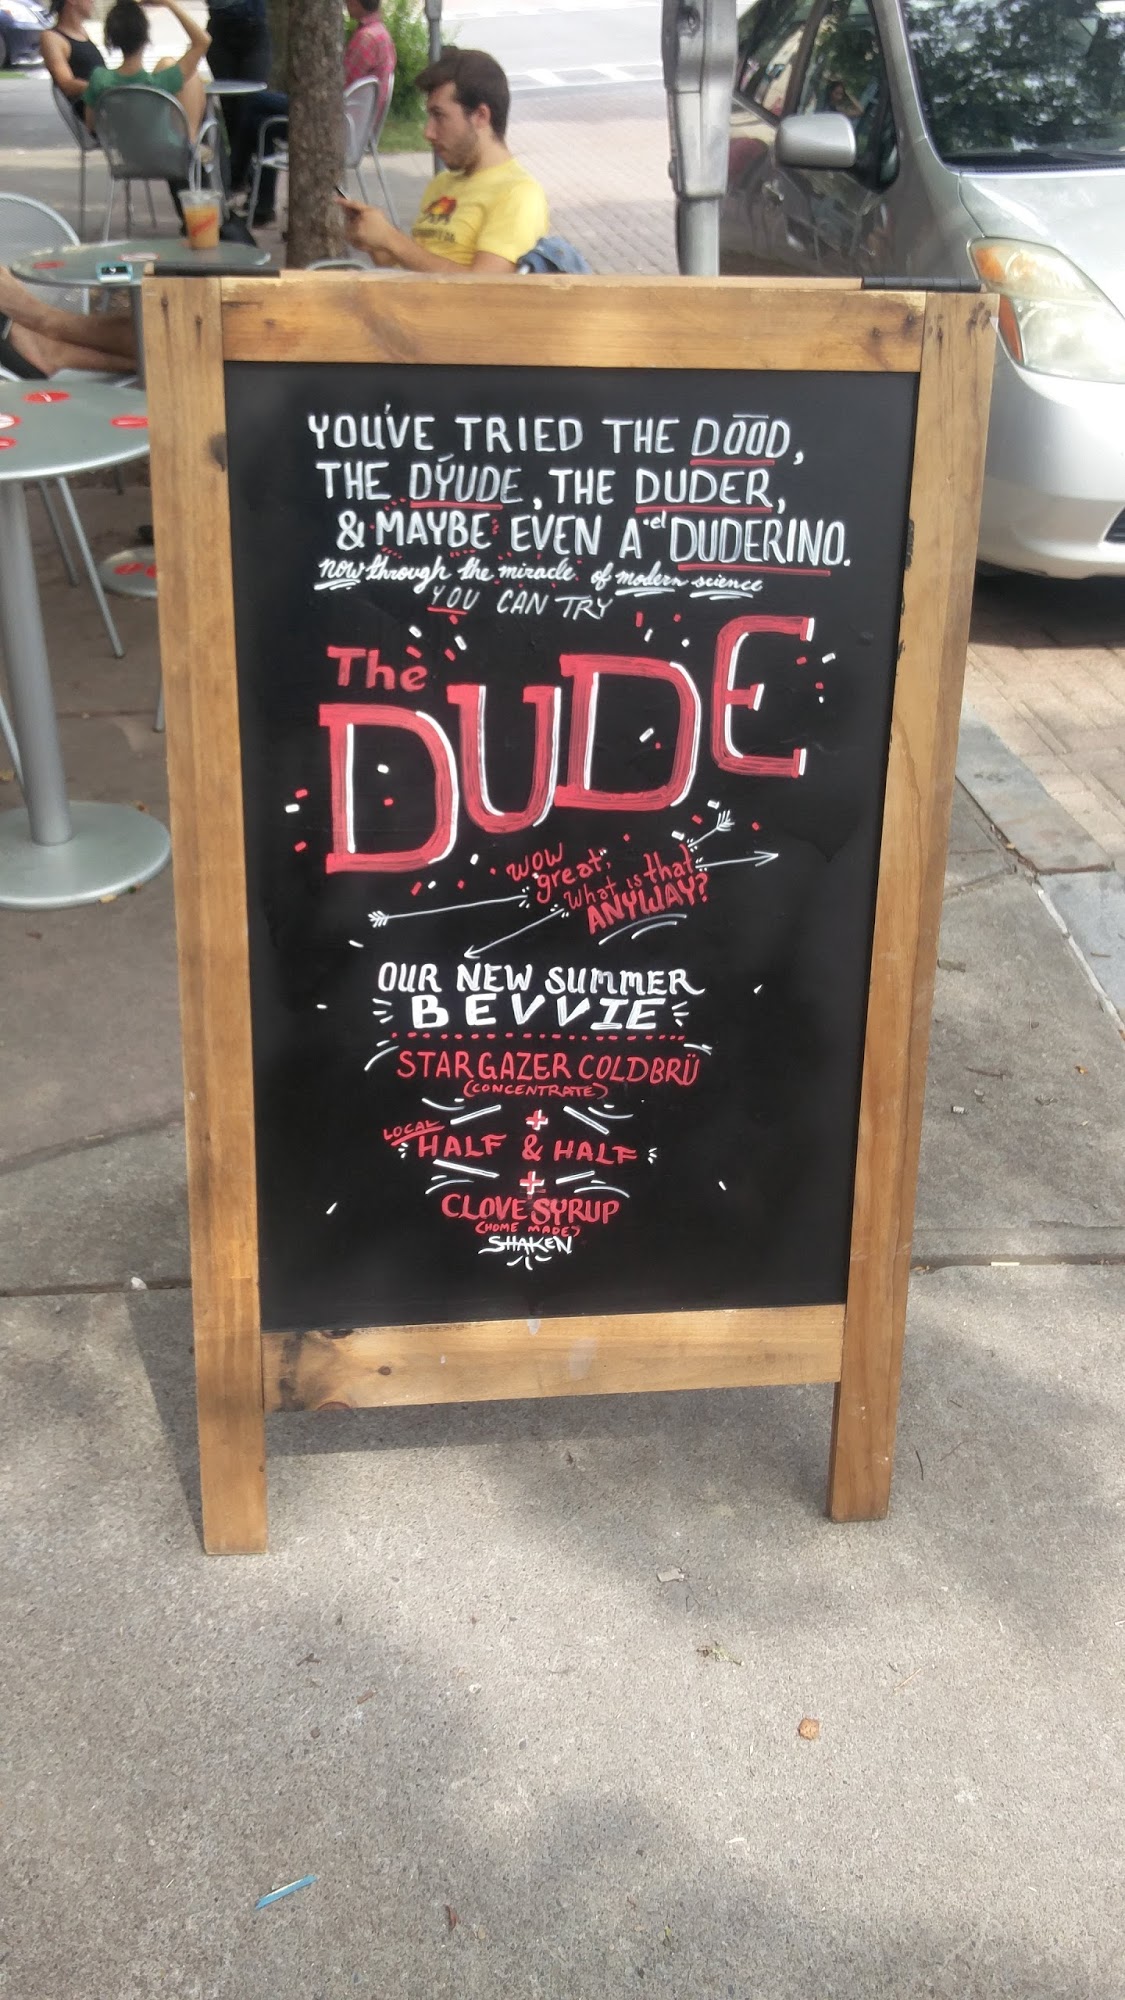 YOU'VE TRIED THE DŌŌD,
THE DÝUDE, THE DUDER,
& MAYBE EVEN A ·el DUDERINO.
now through the miracle of modern science
YOU CAN TRY
The
DUDE
"wow
great,"
What is that
ANYWAY?
OUR NEW SUMMER
BEVVIE
STARGAZER COLDBRÜ
(CONCENTRATE)
+
LOCAL
HALF & HALF
+
CLOVE SYRUP
(HOME MADE)
SHAKEN